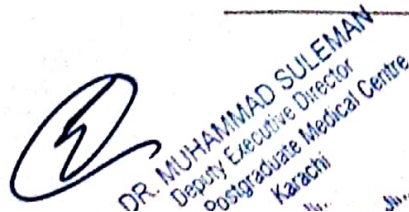 DR. MUHAMMAD SULEMAN
Deputy Executive Director
Postgraduate Medical Centre
Karachi